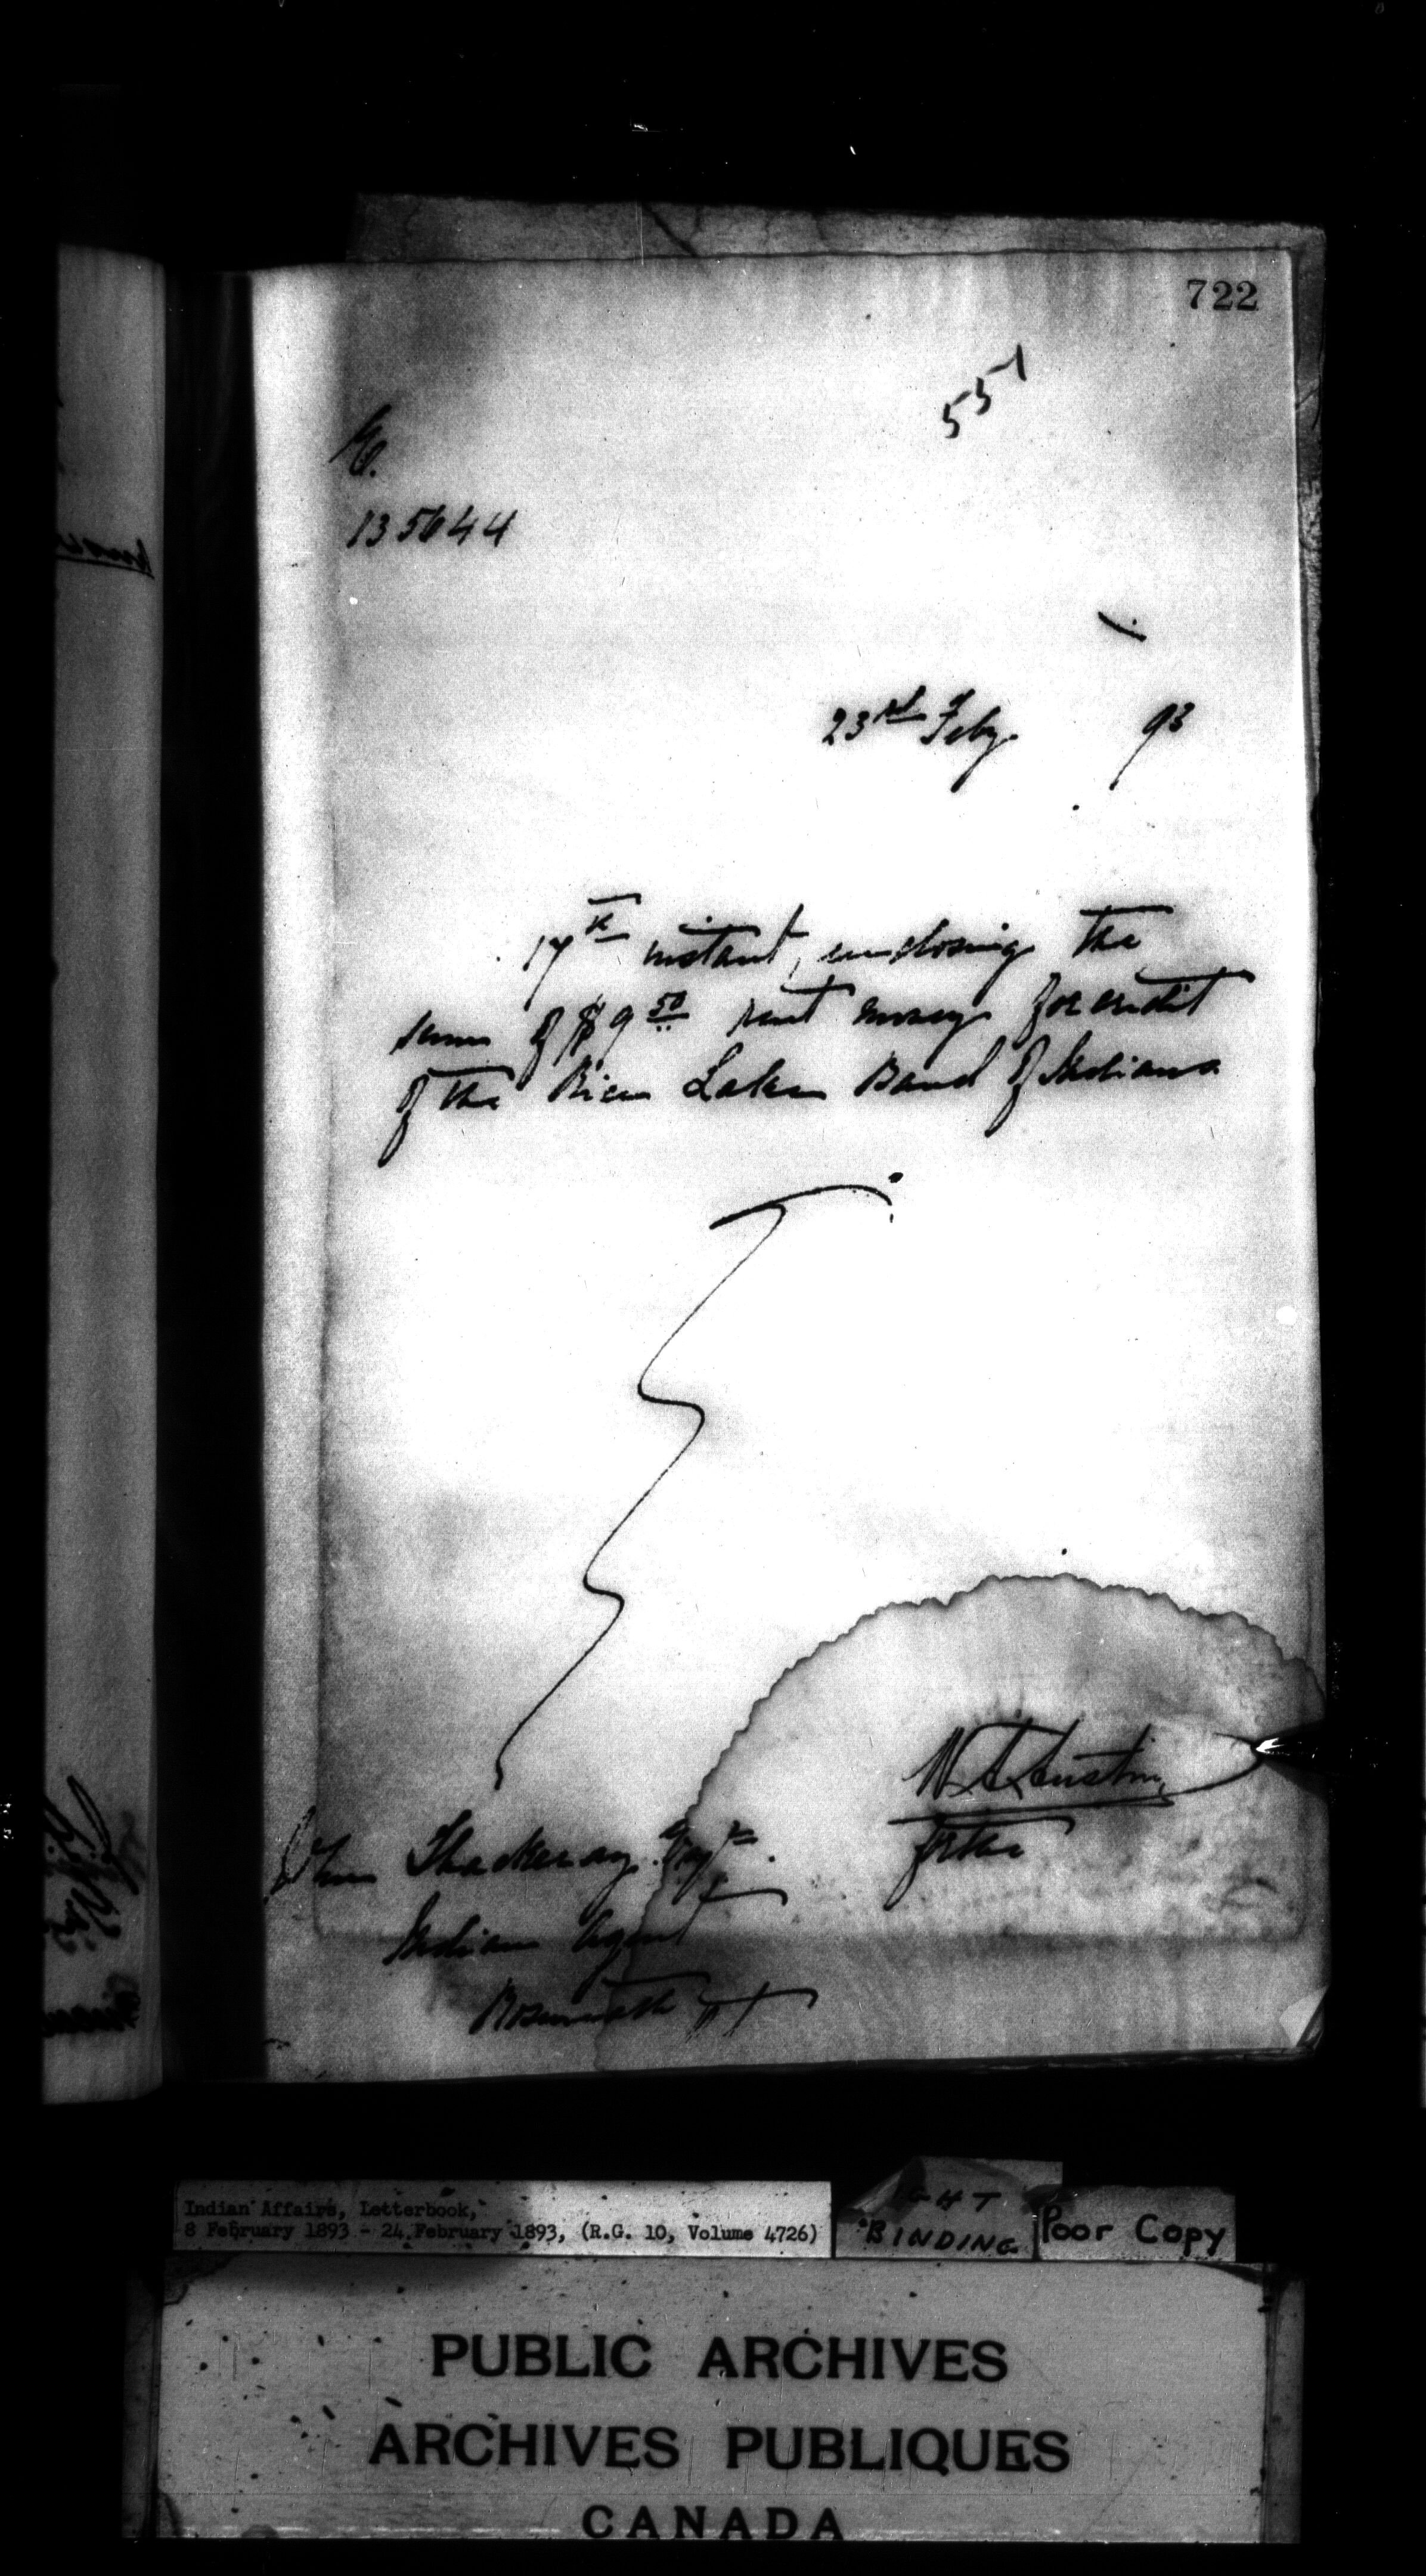 722
551
E.
135644
23rd Feby. 93
17th instant, enclosing the
sum of $9.50 rent money for credit
of the Rice Lake Band of Indians
W A Austin
for the
John Thackeray Esqre.
Indian Agent
Roseneath
Indian Affairs, Letterbook,
8 February 1893 - 24 February 1893, (R.G. 10, Volume 4726)
BINDING
Poor Copy
PUBLIC ARCHIVES
ARCHIVES PUBLIQUES
CANADA